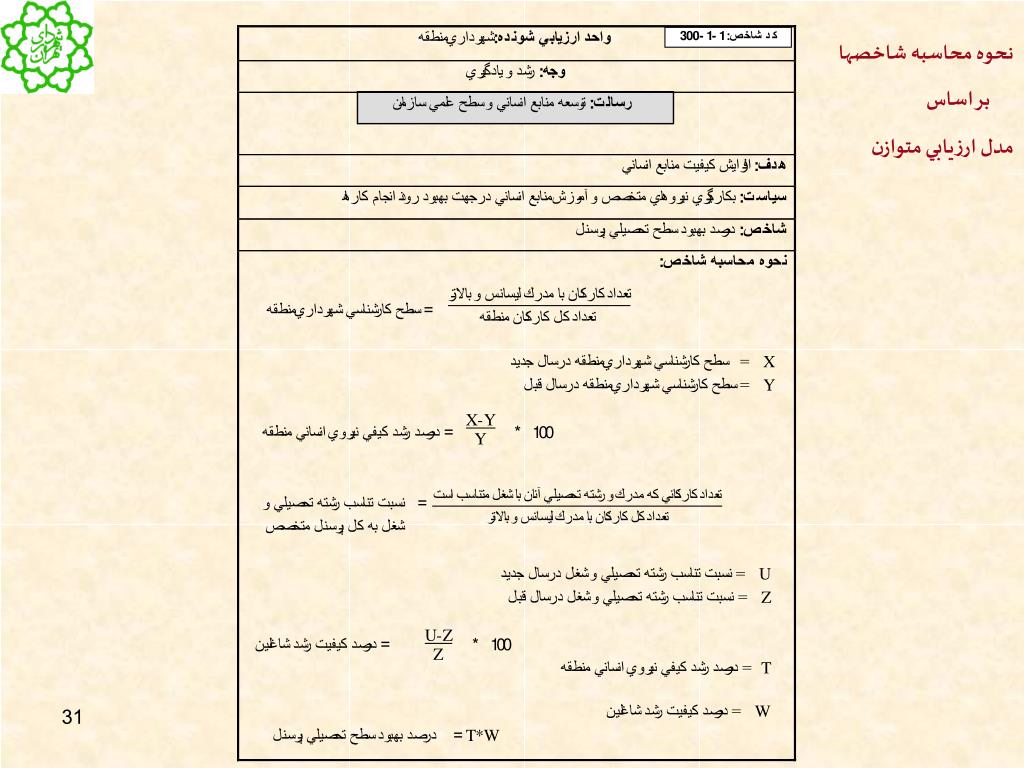 نحوه محاسبه شاخصها
بر اساس
مدل ارزيابي متوازن
كد شاخص: 1-1-300
واحد ارزيابي شونده: شهرداري منطقه
وجه: رشد و يادگيري
رسالت: توسعه منابع انساني و سطح علمي سازمان
هدف: افزايش كيفيت منابع انساني
سياست: بكارگيري نيروهاي متخصص و آموزش منابع انساني در جهت بهبود روند انجام كارها
شاخص: درصد بهبود سطح تحصيلي پرسنل
نحوه محاسبه شاخص:
تعداد كاركنان با مدرك ليسانس و بالاتر
سطح كارشناسي شهرداري منطقه =
تعداد كل كاركنان منطقه
X = سطح كارشناسي شهرداري منطقه در سال جديد
Y = سطح كارشناسي شهرداري منطقه در سال قبل
X-Y
درصد رشد كيفي نيروي انساني منطقه = * 100
Y
تعداد كاركناني كه مدرك و رشته تحصيلي آنان با شغل متناسب است
نسبت تناسب رشته تحصيلي و =
تعداد كل كاركنان با مدرك ليسانس و بالاتر
شغل به كل پرسنل متخصص
U = نسبت تناسب رشته تحصيلي و شغل در سال جديد
Z = نسبت تناسب رشته تحصيلي و شغل در سال قبل
U-Z
درصد كيفيت رشد شاغلين = * 100
Z
T = درصد رشد كيفي نيروي انساني منطقه
W = درصد كيفيت رشد شاغلين
درصد بهبود سطح تحصيلي پرسنل = T*W
31